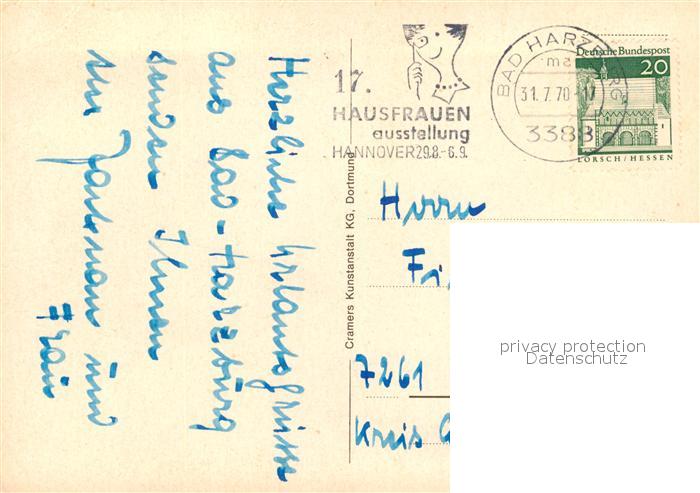 Herzliche Urlaubsgrüsse
aus Bad-Harzburg
senden Ihnen
und
Frau
17.
HAUSFRAUEN
ausstellung
HANNOVER 29.8.-6.9.
BAD HARZBURG
31.7.70-17
3388
Deutsche Bundespost
20
LORSCH/HESSEN
Cramers Kunstanstalt KG, Dortmund
Herrn
7261
Kreis
privacy protection
Datenschutz